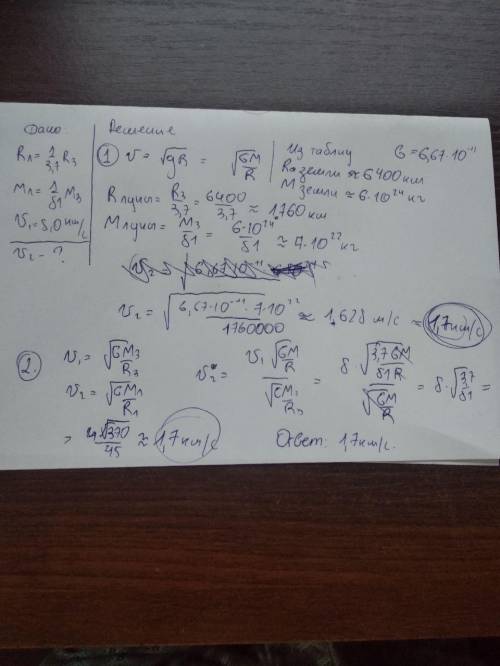 Дано
Rл = 1/3,7 Rз
Mл = 1/81 Mз
v₁ = 8,0 км/с
v₂ - ?
Решение
① v = √gR = √(GM/R)
Из таблиц G = 6,67·10⁻¹¹
R земли ≈ 6400 км
M земли ≈ 6·10²⁴ кг
R луны = Rз/3,7 = 6400/3,7 ≈ 1760 км
M луны = Mз/81 = 6·10²⁴/81 ≈ 7·10²² кг
v₂ = √(6,67·10⁻¹¹·7·10²²/1760000) ≈ 1,628 м/с ≈ 1,7 км/с
②. v₁ = √(GMз/Rз)
v₂ = √(GMл/Rл)
v₂ = v₁√(GM/R) / √(GM₁/Rл) = 8 √(3,7GM/81R) / √(GM/R) = 8·√(3,7/81) =
= 4√370/45 ≈ 1,7 км/с
Ответ: 1,7 км/с.